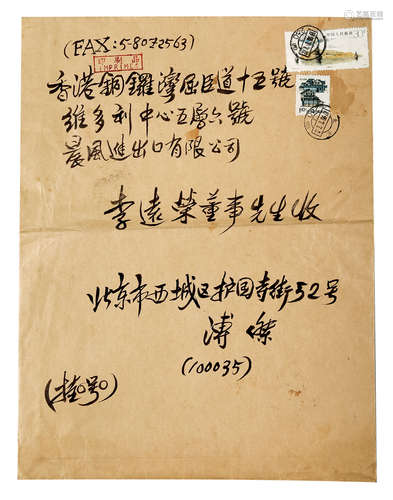 (FAX:5-8072563)
印刷品
IMPRIMÉ
香港銅鑼灣屈臣道十五號
維多利中心五層六號
晨風進出口有限公司
李遠榮董事先生收
北京市西城区护国寺街52号
溥傑
(100035)
(挂号)